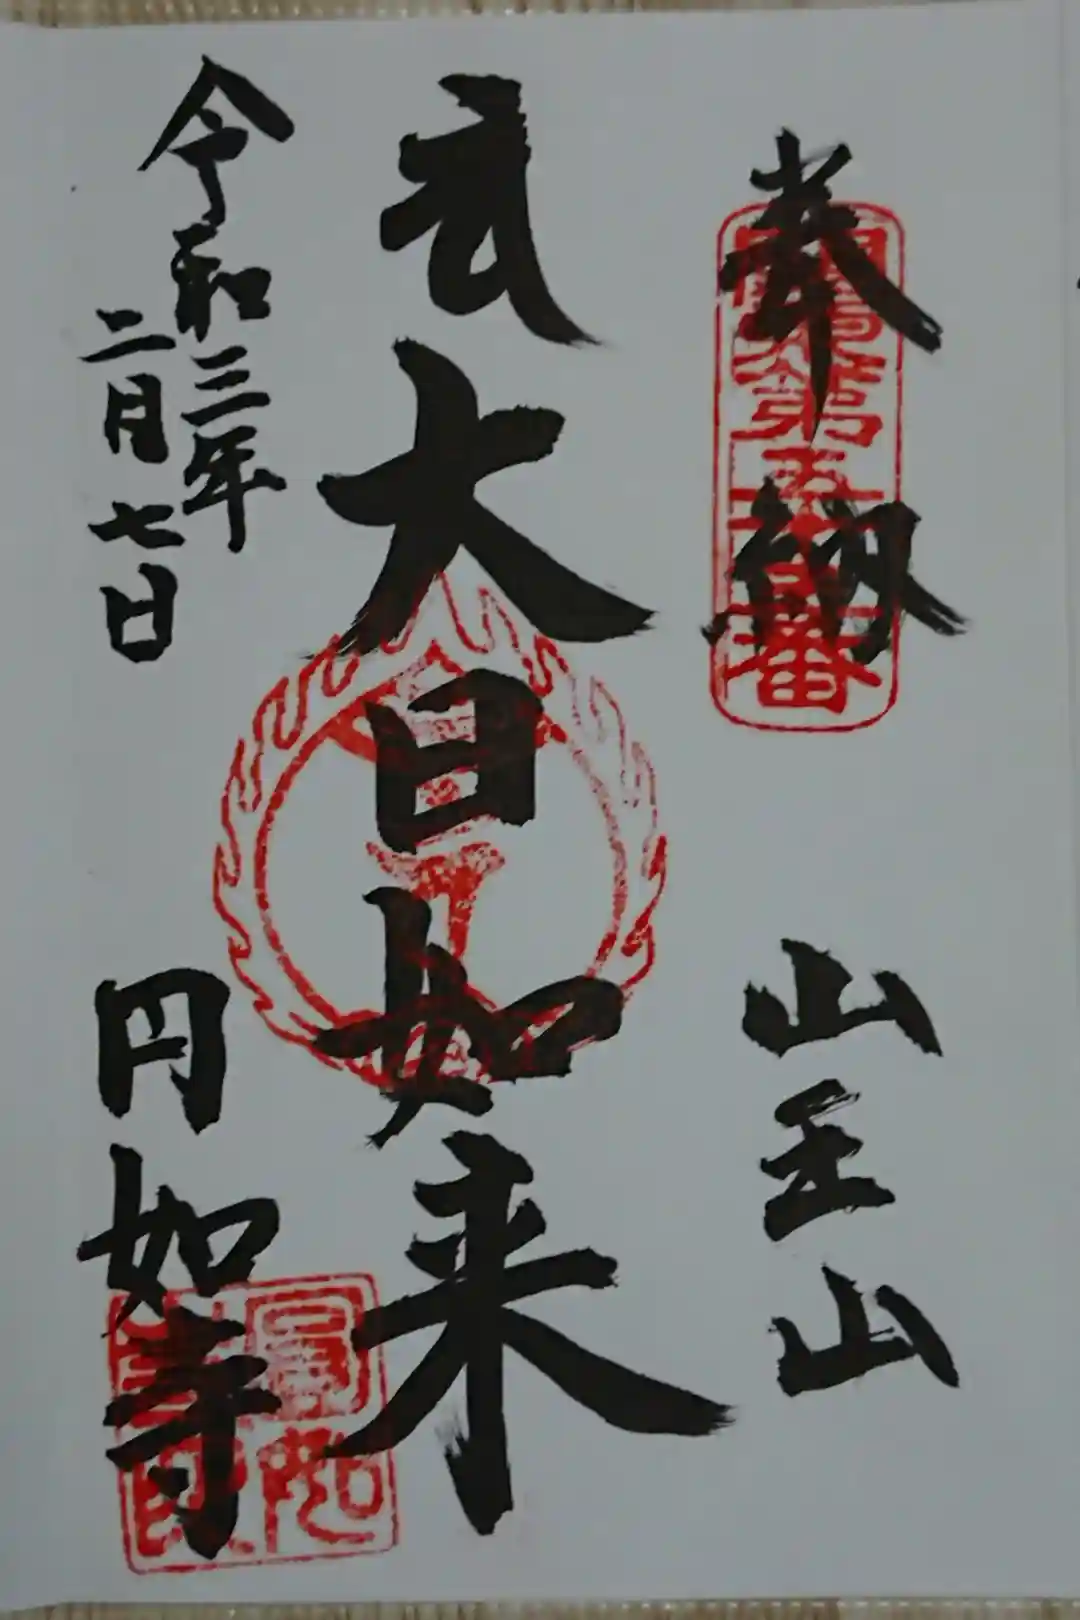 奉納
山王山
大日如来
令和三年
二月七日
円如寺